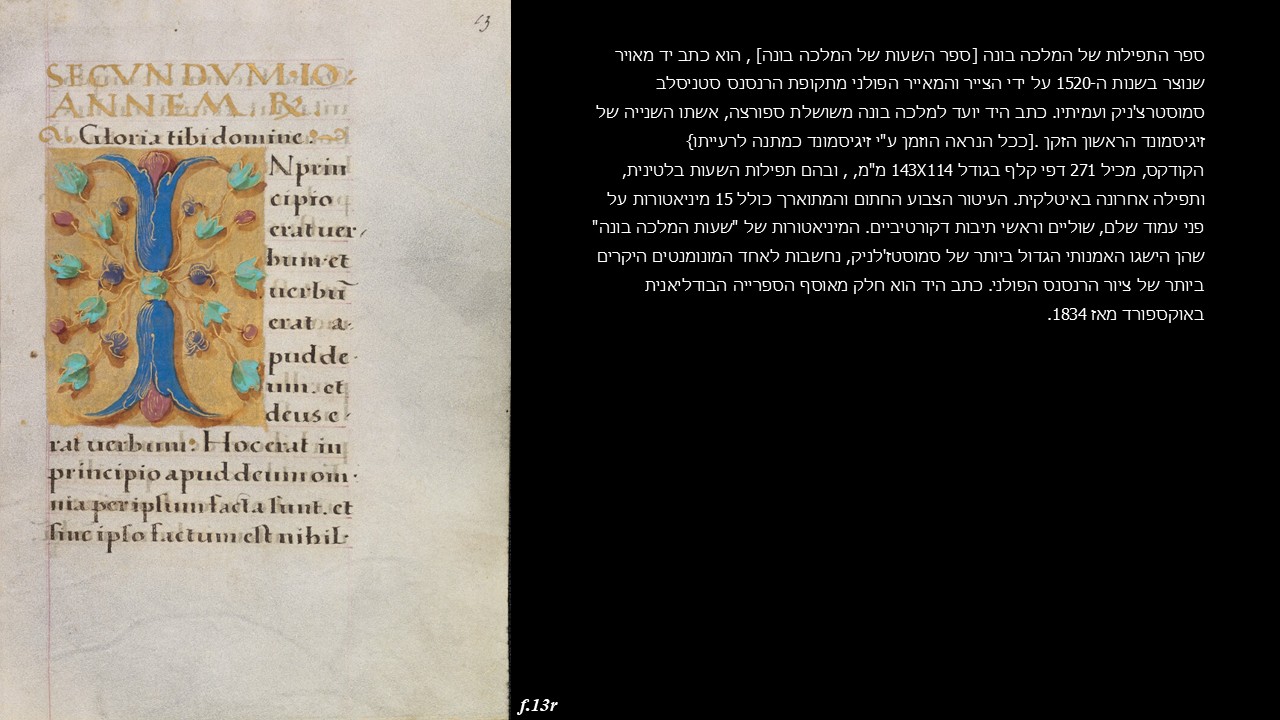 13
SECVNDVM·IO
ANNEM R.
Gloria tibi domine.
INprin
cipio
erat uer
bum et
uerbū
erat a
pud de
um. et
deus e
rat uerbum. Hoc erat in
principio apud deum om
nia per ipsum facta sunt. et
sine ipso factum est nihil
ספר התפילות של המלכה בונה [ספר השעות של המלכה בונה] , הוא כתב יד מאויר
שנוצר בשנות ה-1520 על ידי הצייר והמאייר הפולני מתקופת הרנסנס סטניסלב
סמוסטרצ'ניק ועמיתיו. כתב היד יועד למלכה בונה משושלת ספורצה, אשתו השנייה של
זיגיסמונד הראשון הזקן .[ככל הנראה הוזמן ע"י זיגיסמונד כמתנה לרעייתו}
הקודקס, מכיל 271 דפי קלף בגודל 143X114 מ"מ, , ובהם תפילות השעות בלטינית,
ותפילה אחרונה באיטלקית. העיטור הצבוע החתום והמתוארך כולל 15 מיניאטורות על
פני עמוד שלם, שוליים וראשי תיבות דקורטיביים. המיניאטורות של "שעות המלכה בונה"
שהן הישגו האמנותי הגדול ביותר של סמוסטז'לניק, נחשבות לאחד המונומנטים היקרים
ביותר של ציור הרנסנס הפולני. כתב היד הוא חלק מאוסף הספרייה הבודליאנית
באוקספורד מאז 1834.
f.13r